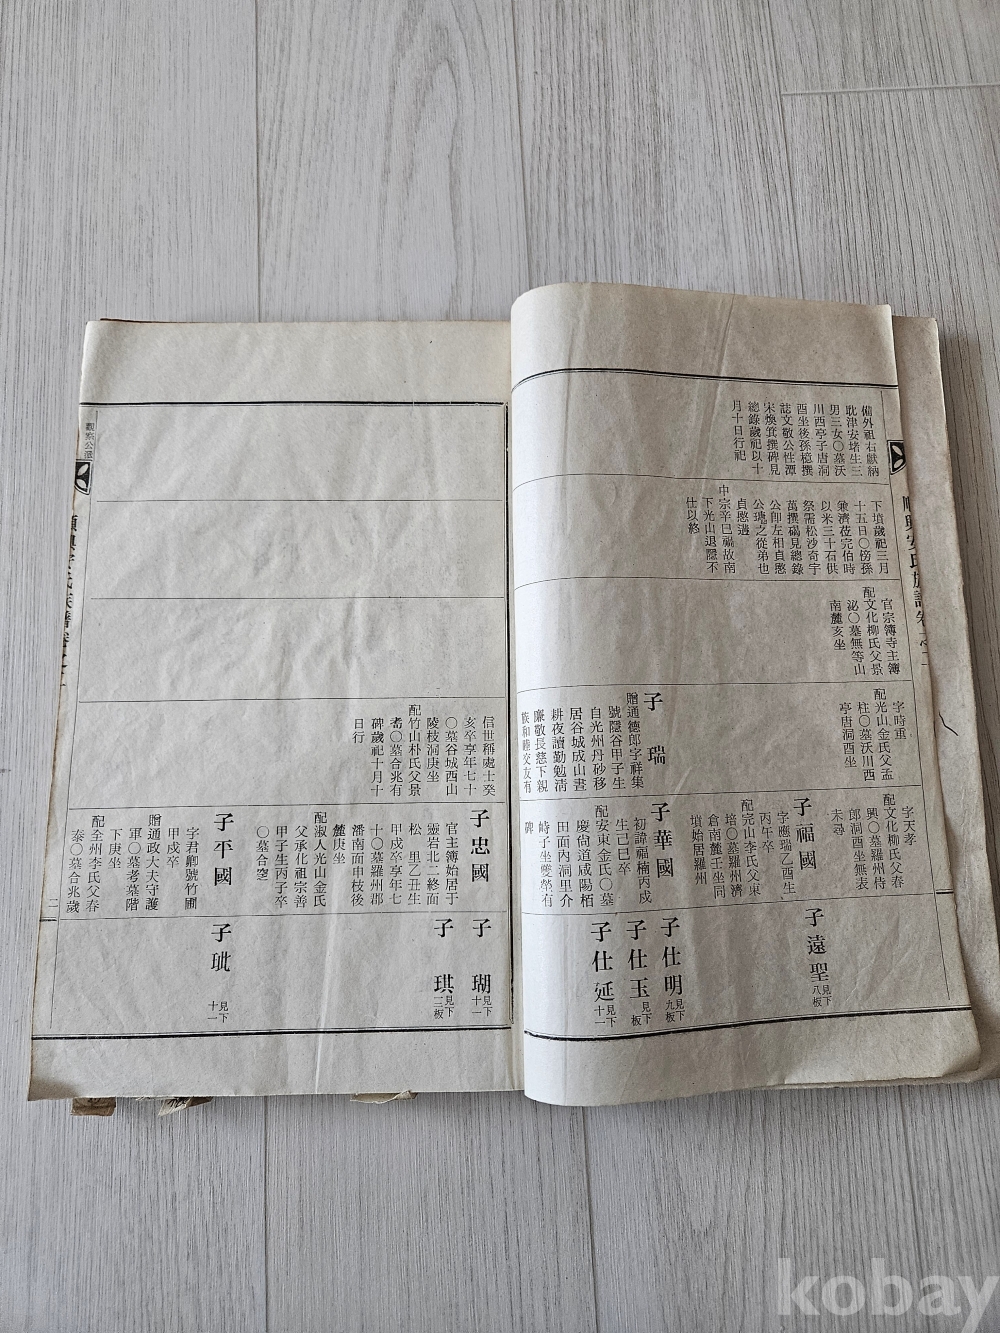 備外祖右獻納
耽津安堵生三
男三女〇墓沃
川西亭子唐洞
酉坐後孫檍撰
誌文敬公性潭
宋煥箕撰碑見
總錄歲祀以十
月十日行祀
下墳歲祀三月
十五日〇傍孫
兼濟莅完伯時
以米三十石供
祭需松沙奇宇
萬撰碣見總錄
公卽左相貞愍
公瑭之從弟也
貞愍遘
中宗辛巳禍故南
下光山退隱不
仕以終
官宗簿寺主簿
配文化柳氏父景
泌〇墓無等山
南麓亥坐
字時重
配光山金氏父孟
柱〇墓沃川西
亭唐洞酉坐
子 瑞
贈通德郎字祥集
號隱谷甲子生
自光州丹砂移
居谷城成山晝
耕夜讀勤勉淸
廉敬長慈下親
族和睦交友有
字天孝
配文化柳氏父春
興〇墓羅州侍
郎洞酉坐無表
未尋
子福國
字應瑞乙酉生
丙午卒
配完山李氏父東
培〇墓羅州濟
倉南麓壬坐同
墳始居羅州
子華國
初諱福楠丙戍
生己巳卒
配安東金氏〇墓
慶尙道咸陽栢
田面內洞里介
峙子坐雙塋有
碑
子遠聖 見下八板
子仕明 見下九板
子仕玉 見下板
子仕延 見下十一
順興安氏族譜卷之二
信世稱處士癸
亥卒享年七十
〇墓谷城西山
陵枝洞庚坐
配竹山朴氏父景
耉〇墓合兆有
碑歲祀十月十
日行
子忠國
官主簿始居于
靈岩北二終面
松 里乙丑生
甲戍卒享年七
十〇墓羅州郡
潘南面申枝後
麓庚坐
配淑人光山金氏
父承化祖宗善
甲子生丙子卒
〇墓合窆
子平國
字君卿號竹圃
甲戍卒
贈通政大夫守護
軍〇墓考墓階
下庚坐
配全州李氏父春
泰〇墓合兆歲
子 瑚 見下十一
子 琪 見下三板
子玭 見下十一
觀察公派
順興安氏族譜卷之二
二
kobay